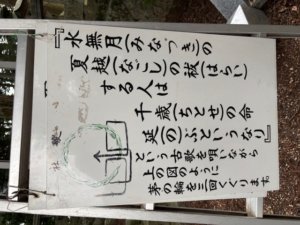 『水無月(みなつき)の
夏越(なごし)の祓(はらい)
する人は
千歳(ちとせ)の命
延(の)ぶというなり』
という古歌を唄いながら
上の図のように
茅の輪を三回くぐります